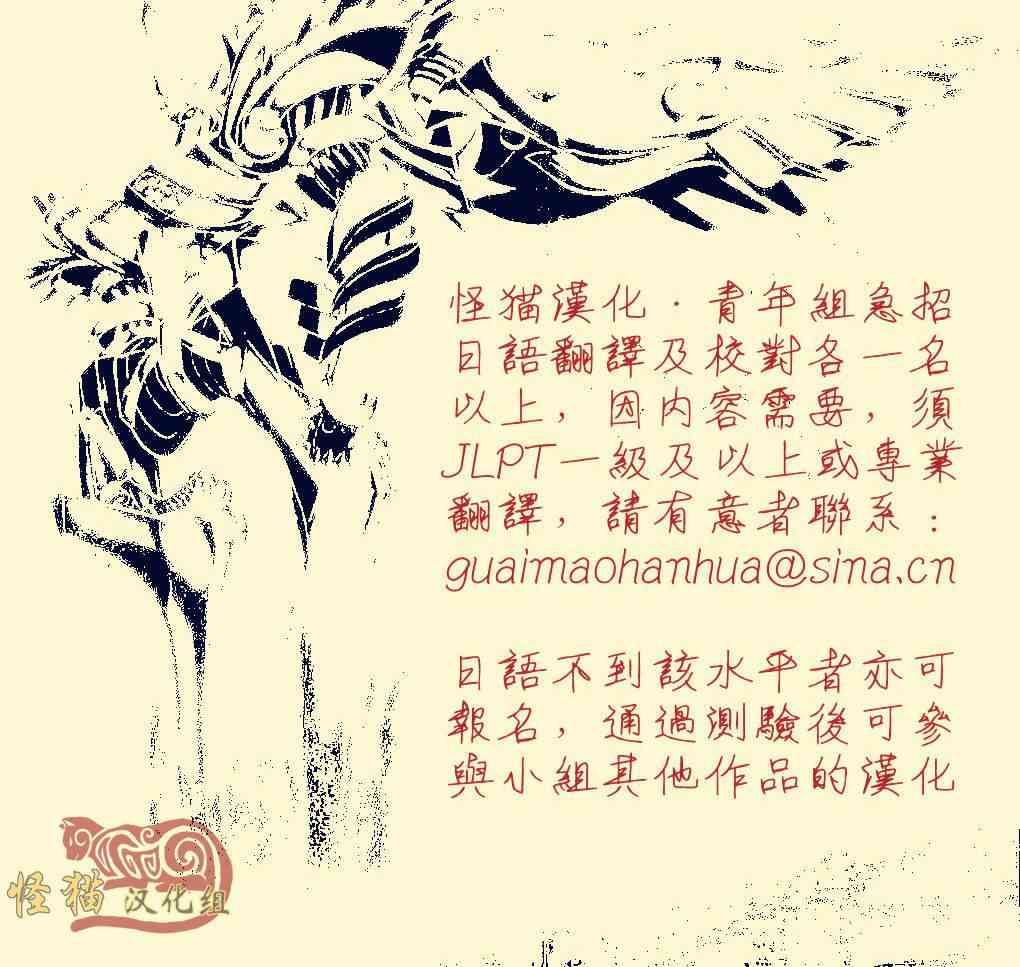 怪猫漢化·青年組急招
日語翻譯及校對各一名
以上，因内容需要，須
JLPT一級及以上或專業
翻譯，請有意者聯系：
guaimaohanhua@sina.cn
日語不到該水平者亦可
報名，通過測驗後可參
與小組其他作品的漢化
怪猫 汉化组